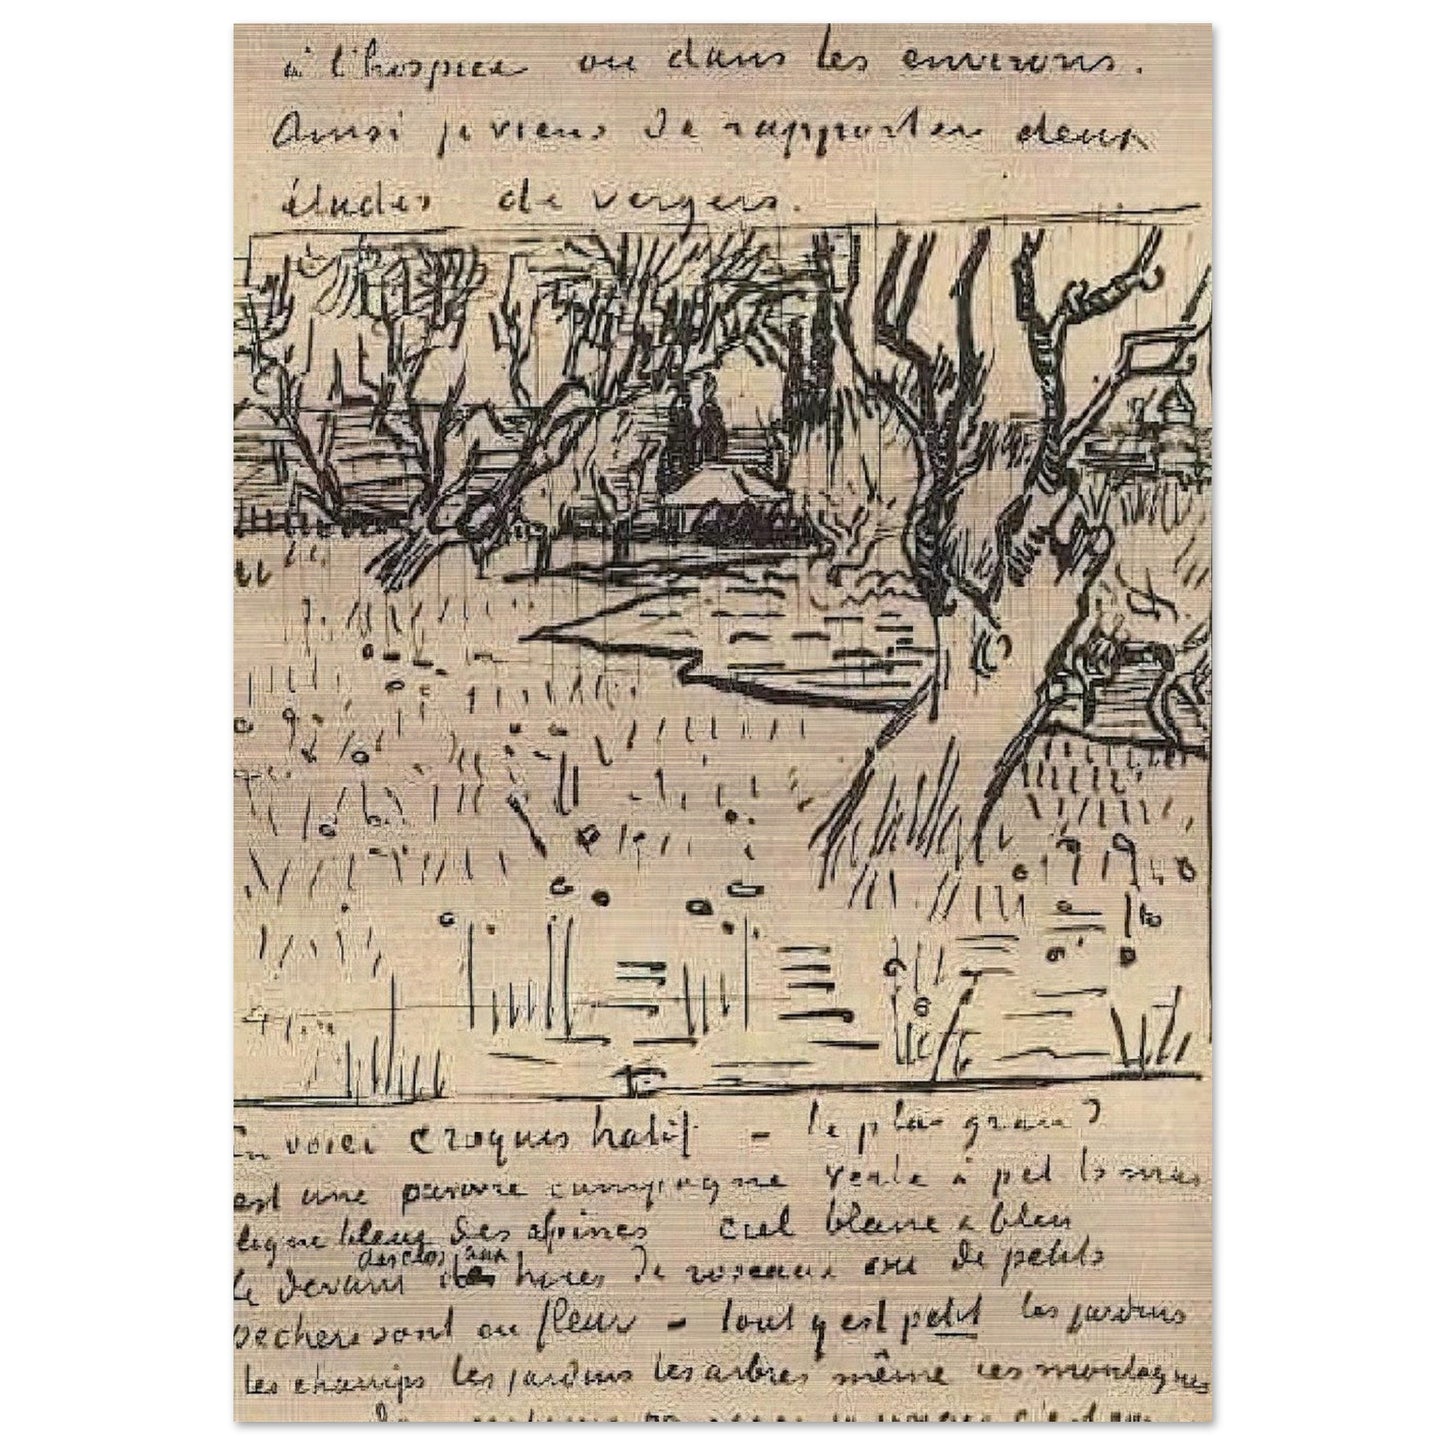 à l'hospice ou dans les environs.
Ainsi je viens de rapporter deux
études de vergers.
En voici croquis hatif – le plus grand
est une pauvre campagne verte à petits mas
ligne bleue des alpines ciel blanc & bleu
des clos aux
le devant haies de roseaux ou de petits
pechers sont en fleur – tout y est petit les jardins
les champs les jardins les arbres même ces montagnes